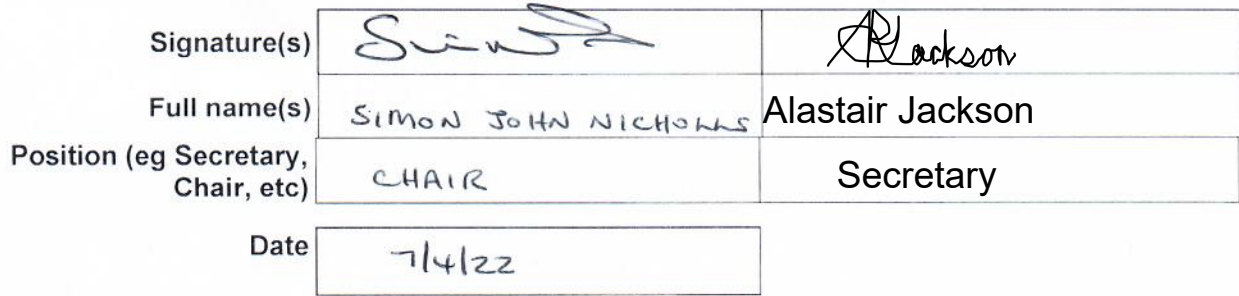 Signature(s) ARJackson
Full name(s) SIMON JOHN NICHOLLS Alastair Jackson
Position (eg Secretary,
Chair, etc) CHAIR Secretary
Date 7/4/22